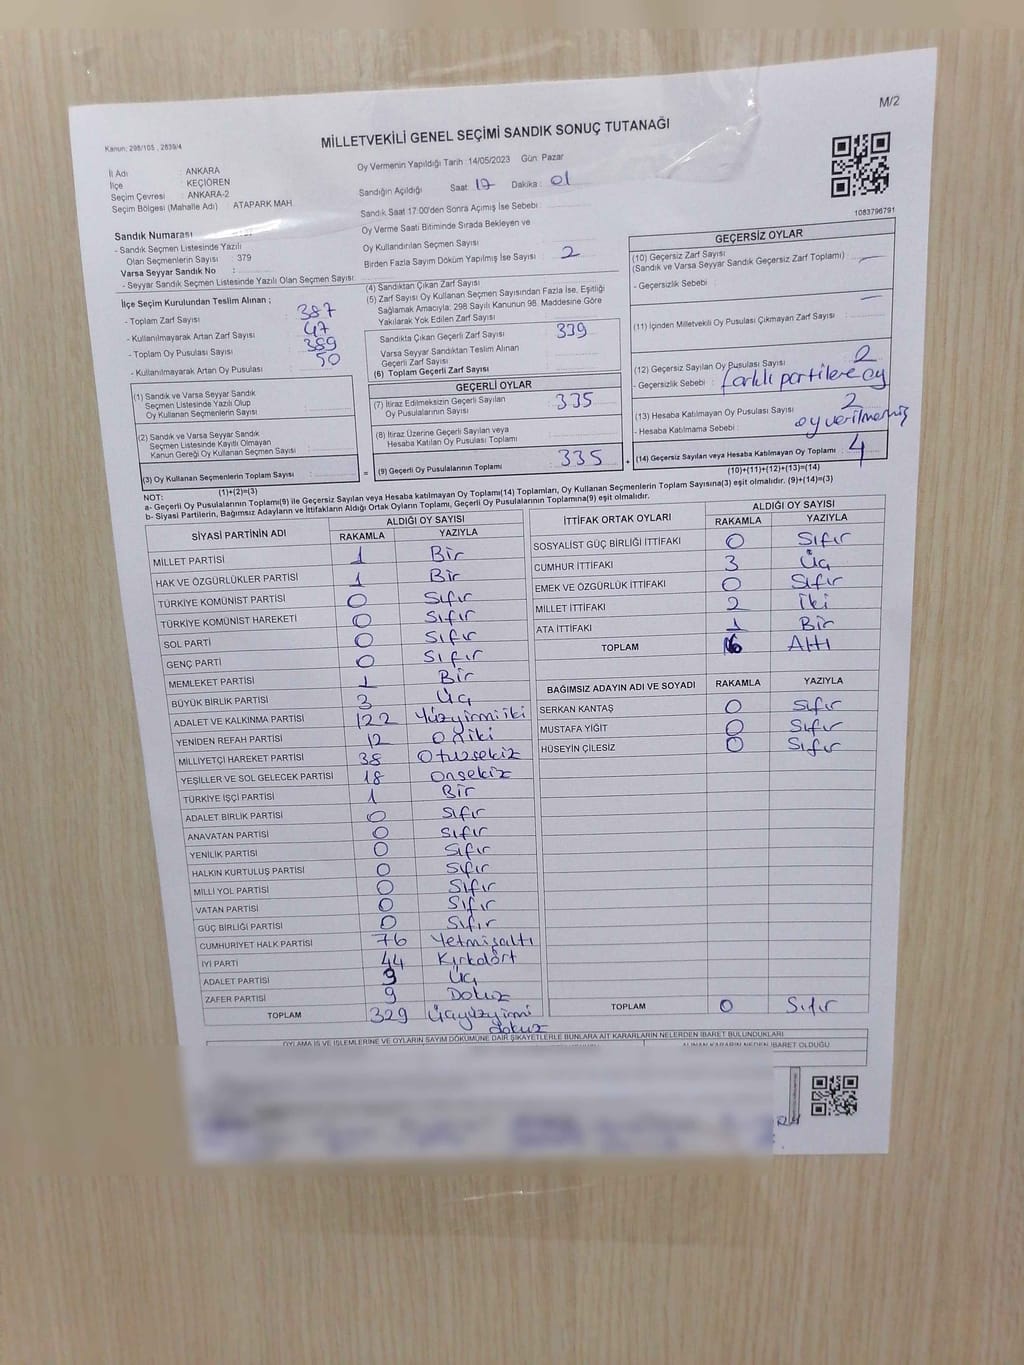 M/2
Kanun: 298/105 , 2839/4
MİLLETVEKİLİ GENEL SEÇİMİ SANDIK SONUÇ TUTANAĞI
İl Adı : ANKARA
İlçe : KEÇİÖREN
Seçim Çevresi : ANKARA-2
Seçim Bölgesi (Mahalle Adı) ATAPARK MAH
Oy Vermenin Yapıldığı Tarih :14/05/2023 Gün: Pazar
Sandığın Açıldığı Saat: 17 Dakika: 01
Sandık Saat 17:00'den Sonra Açımış İse Sebebi :
Oy Verme Saati Bitiminde Sırada Bekleyen ve
Oy Kullandırılan Seçmen Sayısı
Birden Fazla Sayım Döküm Yapılmış İse Sayısı 2
1083796791
Sandık Numarası
- Sandık Seçmen Listesinde Yazılı
Olan Seçmenlerin Sayısı : 379
Varsa Seyyar Sandık No :
- Seyyar Sandık Seçmen Listesinde Yazılı Olan Seçmen Sayısı:
İlçe Seçim Kurulundan Teslim Alınan ;
- Toplam Zarf Sayısı : 387
- Kullanılmayarak Artan Zarf Sayısı : 47
- Toplam Oy Pusulası Sayısı : 389
- Kullanılmayarak Artan Oy Pusulası : 50
(1) Sandık ve Varsa Seyyar Sandık
Seçmen Listesinde Yazılı Olup
Oy Kullanan Seçmenlerin Sayısı :
(2) Sandık ve Varsa Seyyar Sandık
Seçmen Listesinde Kayıtlı Olmayan
Kanun Gereği Oy Kullanan Seçmen Sayısı :
(3) Oy Kullanan Seçmenlerin Toplam Sayısı :
(1)+(2)=(3)
(4) Sandıktan Çıkan Zarf Sayısı
(5) Zarf Sayısı Oy Kullanan Seçmen Sayısından Fazla İse, Eşitliği
Sağlamak Amacıyla; 298 Sayılı Kanunun 98. Maddesine Göre
Yakılarak Yok Edilen Zarf Sayısı :
Sandıkta Çıkan Geçerli Zarf Sayısı : 339
Varsa Seyyar Sandıktan Teslim Alınan
Geçerli Zarf Sayısı :
(6) Toplam Geçerli Zarf Sayısı :
GEÇERLİ OYLAR
(7) İtiraz Edilmeksizin Geçerli Sayılan
Oy Pusulalarının Sayısı : 335
(8) İtiraz Üzerine Geçerli Sayılan veya
Hesaba Katılan Oy Pusulası Toplamı :
= (9) Geçerli Oy Pusulalarının Toplamı : 335 +
GEÇERSİZ OYLAR
(10) Geçersiz Zarf Sayısı
(Sandık ve Varsa Seyyar Sandık Geçersiz Zarf Toplamı) : —
- Geçersizlik Sebebi :
(11) İçinden Milletvekili Oy Pusulası Çıkmayan Zarf Sayısı : —
(12) Geçersiz Sayılan Oy Pusulası Sayısı : 2
- Geçersizlik Sebebi : farklı partilere oy
(13) Hesaba Katılmayan Oy Pusulası Sayısı : 2
- Hesaba Katılmama Sebebi : oy verilmemiş
(14) Geçersiz Sayılan veya Hesaba Katılmayan Oy Toplamı : 4
(10)+(11)+(12)+(13)=(14)
NOT:
a- Geçerli Oy Pusulalarının Toplamı(9) ile Geçersiz Sayılan veya Hesaba katılmayan Oy Toplamı(14) Toplamları, Oy Kullanan Seçmenlerin Toplam Sayısına(3) eşit olmalıdır. (9)+(14)=(3)
b- Siyasi Partilerin, Bağımsız Adayların ve İttifakların Aldığı Ortak Oyların Toplamı, Geçerli Oy Pusulalarının Toplamına(9) eşit olmalıdır.
SİYASİ PARTİNİN ADI ALDIĞI OY SAYISI
RAKAMLA YAZIYLA
MİLLET PARTİSİ 1 Bir
HAK VE ÖZGÜRLÜKLER PARTİSİ 1 Bir
TÜRKİYE KOMÜNİST PARTİSİ 0 Sıfır
TÜRKİYE KOMÜNİST HAREKETİ 0 Sıfır
SOL PARTİ 0 Sıfır
GENÇ PARTİ 0 Sıfır
MEMLEKET PARTİSİ 1 Bir
BÜYÜK BİRLİK PARTİSİ 3 Üç
ADALET VE KALKINMA PARTİSİ 122 Yüzyirmiiki
YENİDEN REFAH PARTİSİ 12 Oniki
MİLLİYETÇİ HAREKET PARTİSİ 38 Otuzsekiz
YEŞİLLER VE SOL GELECEK PARTİSİ 18 onsekiz
TÜRKİYE İŞÇİ PARTİSİ 1 Bir
ADALET BİRLİK PARTİSİ 0 Sıfır
ANAVATAN PARTİSİ 0 Sıfır
YENİLİK PARTİSİ 0 Sıfır
HALKIN KURTULUŞ PARTİSİ 0 Sıfır
MİLLİ YOL PARTİSİ 0 Sıfır
VATAN PARTİSİ 0 Sıfır
GÜÇ BİRLİĞİ PARTİSİ 0 Sıfır
CUMHURİYET HALK PARTİSİ 76 Yetmişaltı
İYİ PARTİ 44 Kırkdört
ADALET PARTİSİ Üç
ZAFER PARTİSİ 9 Dokuz
TOPLAM 329 Üçyüzyirmi
dokuz
İTTİFAK ORTAK OYLARI ALDIĞI OY SAYISI
RAKAMLA YAZIYLA
SOSYALİST GÜÇ BİRLİĞİ İTTİFAKI 0 Sıfır
CUMHUR İTTİFAKI 3 Üç
EMEK VE ÖZGÜRLÜK İTTİFAKI 0 Sıfır
MİLLET İTTİFAKI 2 İki
ATA İTTİFAKI 1 Bir
TOPLAM 6 Altı
BAĞIMSIZ ADAYIN ADI VE SOYADI RAKAMLA YAZIYLA
SERKAN KANTAŞ 0 Sıfır
MUSTAFA YİĞİT 0 Sıfır
HÜSEYİN ÇİLESİZ 0 Sıfır
TOPLAM 0 Sıfır
OYLAMA İŞ VE İŞLEMLERİNE VE OYLARIN SAYIM DÖKÜMÜNE DAİR ŞİKAYETLERLE BUNLARA AİT KARARLARIN NELERDEN İBARET BULUNDUKLARI
ALINAN KARARIN NEDEN İBARET OLDUĞU